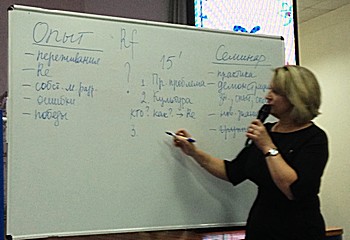 Опыт
- переживания
- Re
- собст. м
- ошибки
- победы
Rf
?
15'
1. Пр. проблема
2. Культура
кто? Как? → Re
3.
Семинар
- практика
- демонстрация